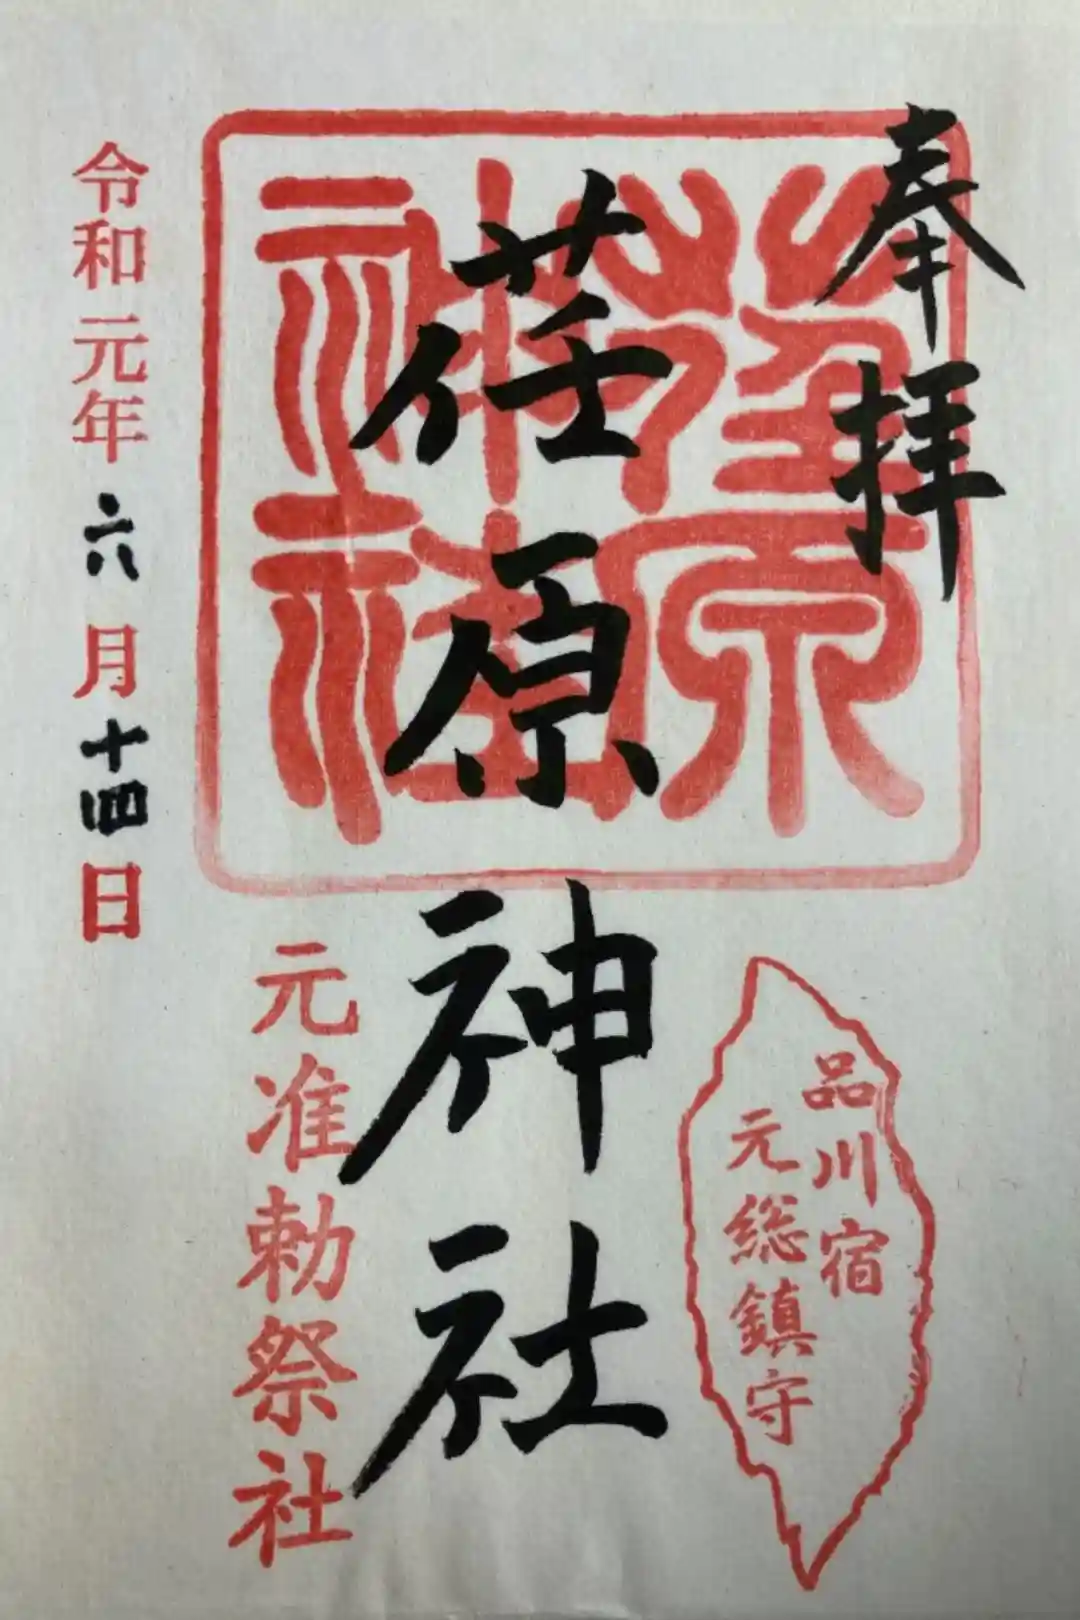 奉拝
荏原
神社
荏原神社
品川宿
元総鎮守
元准勅祭社
令和元年六月十四日